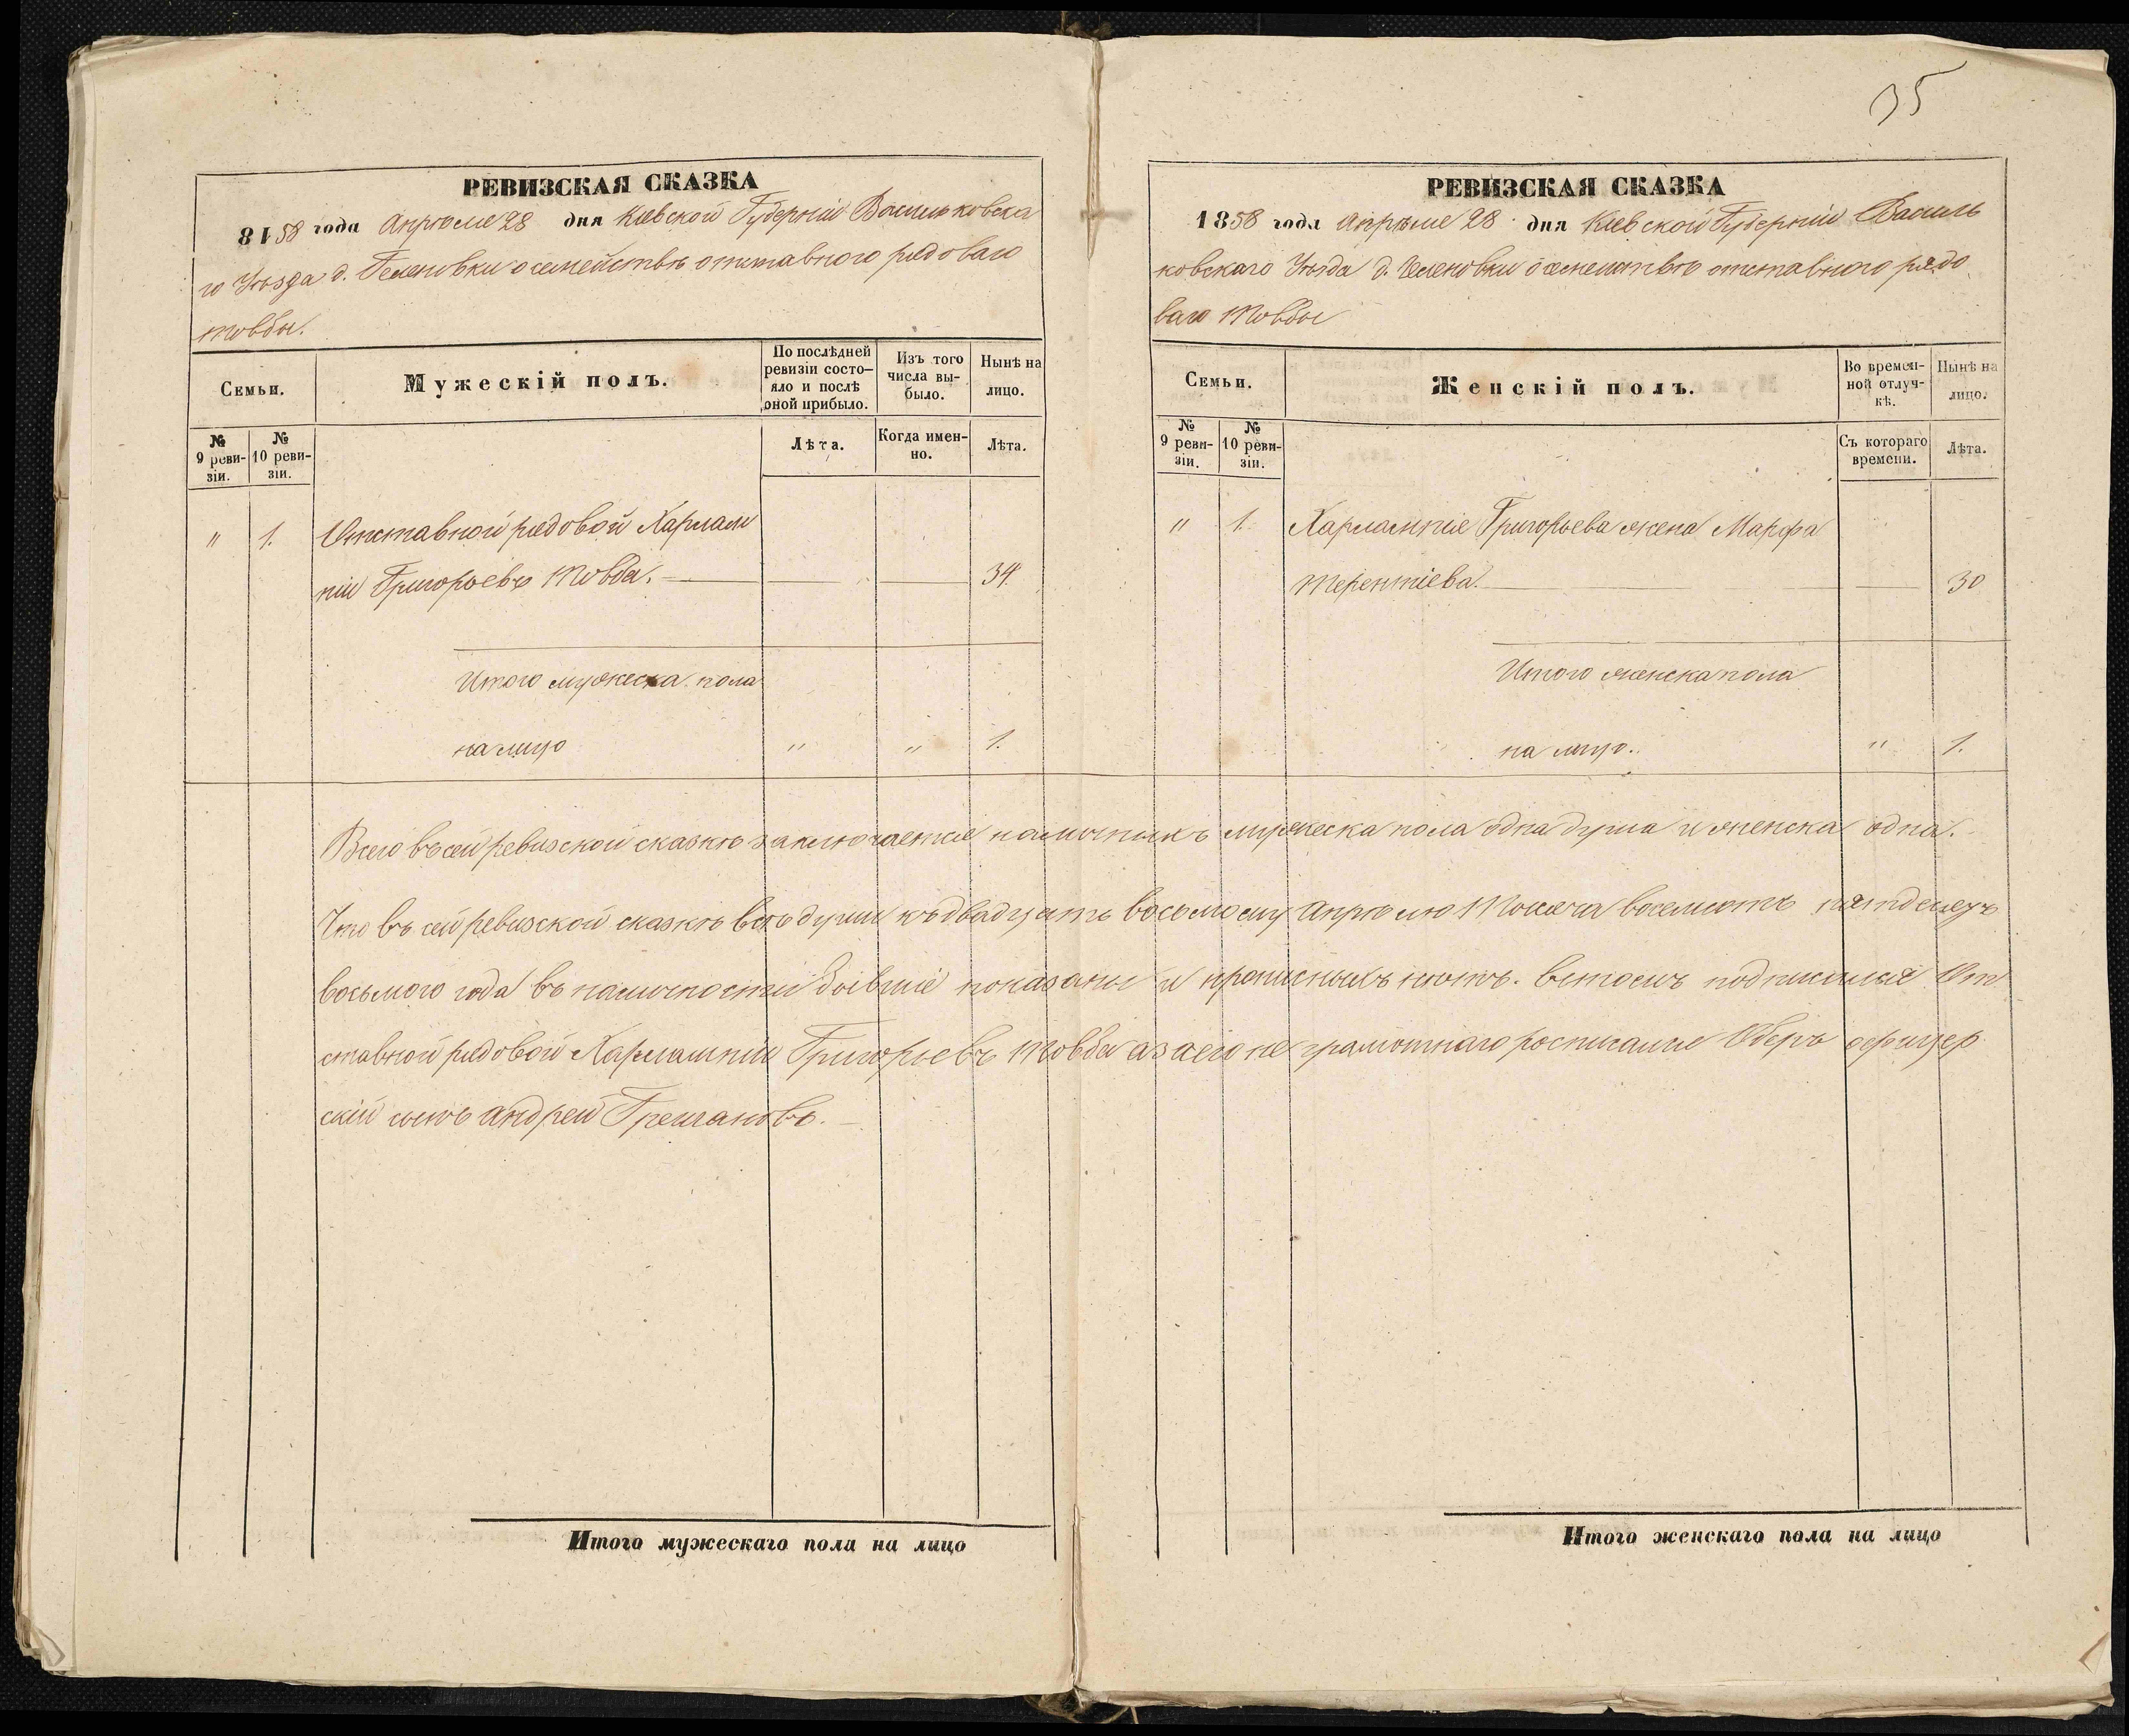 35
РЕВИЗСКАЯ СКАЗКА
8158 года Апрѣля 28 дня Кіевской Губерніи Васильковска
го Уѣзда д. Геленовки о семействѣ отставного рядоваго
Товбы.
Семьи.
Мужескій полъ.
По послѣдней
ревизіи состо-
яло и послѣ
оной прибыло.
Изъ того
числа вы-
было.
Нынѣ на
лицо.
№
9 реви-
зіи.
№
10 реви-
зіи.
Лѣта.
Когда имен-
но.
Лѣта.
" 1. Отставной рядовой Харлам
пій Григорьевъ Товба. 34
Итого мужеска пола
на лицо " " 1.
РЕВИЗСКАЯ СКАЗКА
1858 года Апрѣля 28 дня Кіевской Губерніи Василь
ковскаго Уѣзда д. Геленовки о семействѣ отставного рядо
ваго Товбы
Семьи.
Женскій полъ.
Во времен-
ной отлуч-
кѣ.
Нынѣ на
лицо.
№
9 реви-
зіи.
№
10 реви-
зіи.
Съ котораго
времени.
Лѣта.
" 1. Харлампія Григорьева жена Марфа
Терентіева. 30
Итого женска пола
на лицо. " 1.
Всего въ сей ревизской сказкѣ заключается наличныхъ мужеска пола одна душа и женска одна.
Что въ сей ревизской сказкѣ всѣ души къ двадцать восьмому Апрѣлю Тысяча восемсотъ пятдесятъ
восьмого года въ наличности бывшіе показаны и прописныхъ нѣтъ. Въ томъ подписился От
ставной рядовой Харлампій Григорьевъ Товба а за его не грамотнаго росписался Оберъ офицер
скій сынъ Андрей Гречановъ.
Итого мужескаго пола на лицо
Итого женскаго пола на лицо